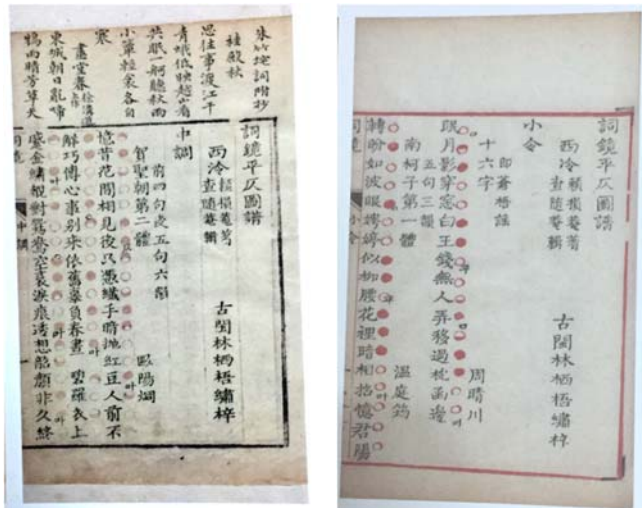 朱竹垞詞附抄
桂殿秋
思往事渡江干
青蛾低映越山看
共眠一舸聽秋雨
小簟輕衾各自
寒
畫堂春
東城朝日亂啼
鴉雨晴芳草天
詞鏡平仄圖譜
西泠 賴損菴著 查隨菴輯 古閩林栖梧繡梓
中調
前四句後五句六韻
賀聖朝第二體 歐陽烱
憶昔花間相見後只憑纖手暗拋紅豆人前不
解巧傳心事別來依舊辜負春晝 碧羅衣上
蹙金繡覩對鴛鴦空裛淚痕透想韶顏非久終
中調
詞鏡平仄圖譜
西泠 賴損菴著 查隨菴輯 古閩林栖梧繡梓
小令
即蒼梧謠
十六字 周晴川
眠月影穿窓白玉錢無人弄移過枕函邊
五句三韻
南柯子第一體 溫庭筠
轉盼如波眼娉婷似柳腰花裡暗相招憶君腸
小令